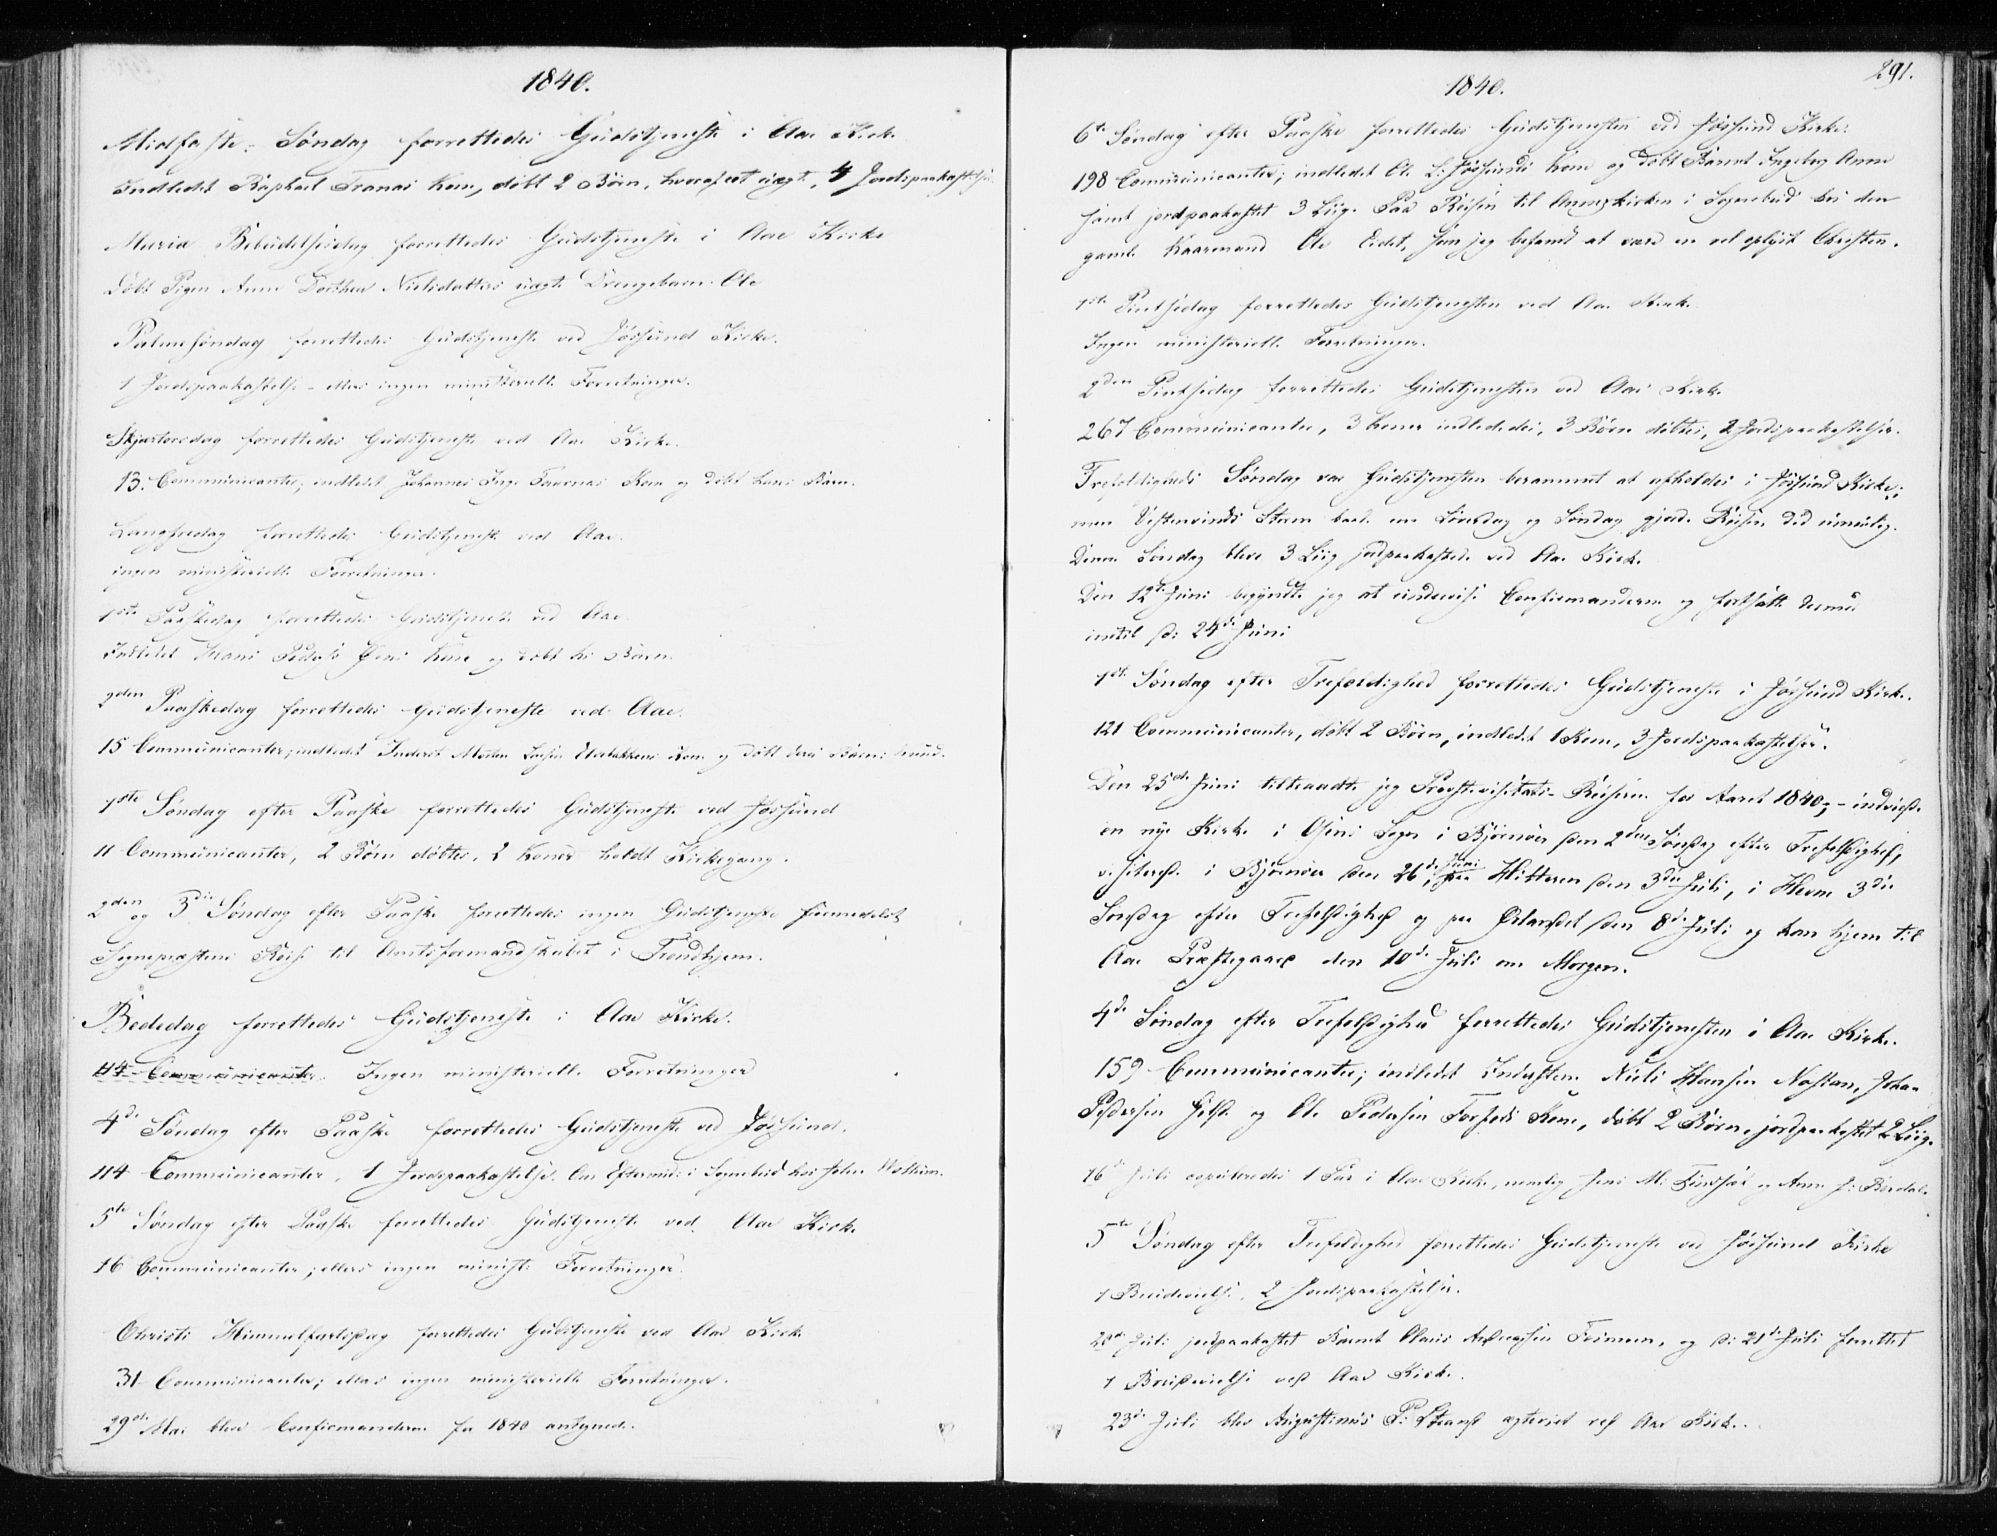 1840.
Midfaste-Søndag forrettedes Gudstjeneste i Aae Kirke
Indledet Raphael Tranas Kone, døbt 2 Børn, hvoraf et uægt. 4 Jordspaakastelser
Mariæ Bebudelsesdag forrettedes Gudstjeneste i Aae Kirke
døbt Pigen Anne Dorthea Nielsdatters uægte Drengebarn Ole
Palmesøndag forrettedes Gudstjeneste ved Jøssund Kirke.
1 Jordspaakastelse - ellers ingen ministerielle Forretninger.
Skjærtorsdag forrettedes Gudstjeneste ved Aae Kirke.
13. Communicanter; indledet Johannes Kone og døbt hans Barn.
Langfredag forrettedes Gudstjeneste ved Aae.
ingen ministerielle Forretninger.
1ste Paaskedag forrettedes Gudstjeneste ved Aae.
Indledet Hans Kone og døbt Barn.
2den Paaskedag forrettedes Gudstjeneste ved Aae.
15 Communicanter, indledet Inderst Morten Kone og døbt deres Barn:
1ste Søndag efter Paaske forrettedes Gudstjeneste ved Jøssund
11 Communicanter, 2 Børn døbtes, 2 Koner holdt Kirkegang.
2den og 3die Søndag efter Paaske forrettedes ingen Gudstjeneste formedelst
Sognepræstens Reise til Amtsformandskabet i Trondhjem.
Bededag forrettedes Gudstjeneste i Aae Kirke.
114 Communicanter. Ingen ministerielle Forretninger
4de Søndag efter Paaske forrettedes Gudstjeneste ved Jøssund.
114 Communicanter, 1 Jordspaakastelse. Om Eftermid: i Sognebud hos
5te Søndag efter Paaske forrettedes Gudstjeneste ved Aae Kirke
16 Communicanter; ellers ingen minist: Forretninger.
Christi Himmelfartsdag forrettedes Gudstjeneste ved Aae Kirke
31 Communicanter; ellers ingen ministerielle Forretninger.
29de Mai bleve Confirmanderne for 1840 antegnede.
291.
1840.
6te Søndag efter Paaske forrettedes Gudstjenesten ved Jøssund Kirke.
198 Communicanter; indledet Ole L: Jøssunds Kone og døbt Barnet Ingeborg Anne
samt jordpaakastet 3 Liig. Paa Reisen til Annexkirken i Sognebud hos den
gamle Kaarmand Ole Eidet, som jeg befandt at være en vel oplyst Christen.
1ste Pintsedag forrettedes Gudstjenesten ved Aae Kirke
Ingen ministerielle Forretninger.
2den Pintsedag forrettedes Gudstjenesten ved Aae Kirke
267 Communicanter, 3 Koner indlededes, 3 Børn døbtes, 2 Jordspaakastelser.
Trefoldigheds Søndag var Gudstjenesten berammet at afholdes i Jøssund Kirke;
men Vestenvinds Storm baade om Løverdag og Søndag gjorde Reisen did umulig.
Denne Søndag bleve 3 Liig jordpaakastede ved Aae Kirke.
Den 12te Juni begyndte jeg at undervise Confirmanderne og fortsatte dermed
indtil d: 24de Juni
1ste Søndag efter Trefoldighed forrettedes Gudstjeneste i Jøssund Kirke.
121 Communicanter, døbt 2 Børn, indledet 1 Kone, 3 Jordspaakastelser.
Den 25de Juni tiltraadte jeg Provstevisitats-Reiserne for Aaret 1840; - indviede
en nye Kirke i Osens Sogn i Bjørnør den 2den Søndag efter Trefoldighed,
visiterede i Bjørnør den 26de Juni, paa Hitteren den 3die Juli, i Hevne 3die
Søndag efter Trefoldighed og paa Ørlandet den 8de Juli og kom hjem til
Aae Præstegaard den 10de Juli om Morgen.
4de Søndag efter Trefoldighed forrettedes Gudstjenesten i Aae Kirke.
159 Communicanter; indledet Inderstene Niels Hansen Johan
Pedersen og Ole Pedersen Kone, døbt 2 Børn, jordpaakastet 2 Liig.
16de Juli copuleredes 1 Par i Aae Kirke, nemlig Jens M: og Anne J:
5te Søndag efter Trefoldighed forrettedes Gudstjeneste ved Jøssund Kirke
1 Brudevielse, 2 Jordspaakastelser.
20de Juli jordpaakastet Barnet og d: 21de Juli forrettet
1 Brudevielse ved Aae Kirke.
23de Juli blev Augustinus P: Strand ægteviet ved Aae Kirke.